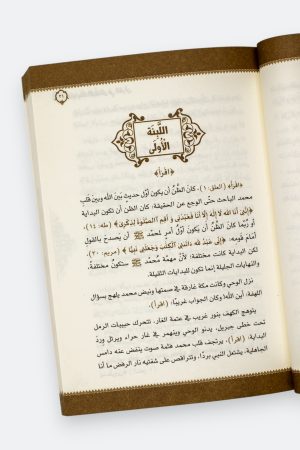 ٣١
اللَّبِنَة
الأُولَى
﴿اقرأ﴾
﴿اقرأ﴾ (العلق: ١). كان الظنُّ أن يكون أوّل حديث بين الله وبين قلب
محمد الباحث حتّى الوجع عن الحقيقة، كان الظن أن تكون البداية
﴿إِنَّنِي أَنَا اللَّهُ لَا إِلَهَ إِلَّا أَنَا فَاعْبُدْنِي وَأَقِمِ الصَّلَاةَ لِذِكْرِي﴾ (طه: ١٤)،
أو ربّما كان الظنّ أن يكون أوّل أمر لمحمد ﷺ أن يصدح بالقول
أمام قومه: ﴿إِنِّي عَبْدُ اللَّهِ آتَانِيَ الْكِتَابَ وَجَعَلَنِي نَبِيًّا﴾ (مريم: ٣٠).
لكن البداية كانت مختلفة؛ لأنّ مهمّة محمّد ﷺ ستكون مختلفة،
والنهايات الجليلة إنما تكون للبدايات الثقيلة.
نزل الوحي وكانت مكة غارقة في صمتها ونبض محمد يلهج بسؤال
اللهفة: أين الله؟ وكان الجواب غريبًا: (اقرأ).
يتوهج الكهف بنور غريب في عتمة الغار، تتحرك حبيبات الرمل
تحت خطى جبريل، يدنو الوحي وينهمر في غار حراء ويرتل ورد
البداية: (اقرأ). يرتجف قلب محمد هيبة صوت ينفض عنه دامس
الجاهلية، يشتعل النبي بردًا، وتتراقص على شفتيه نار الرفض ما أنا